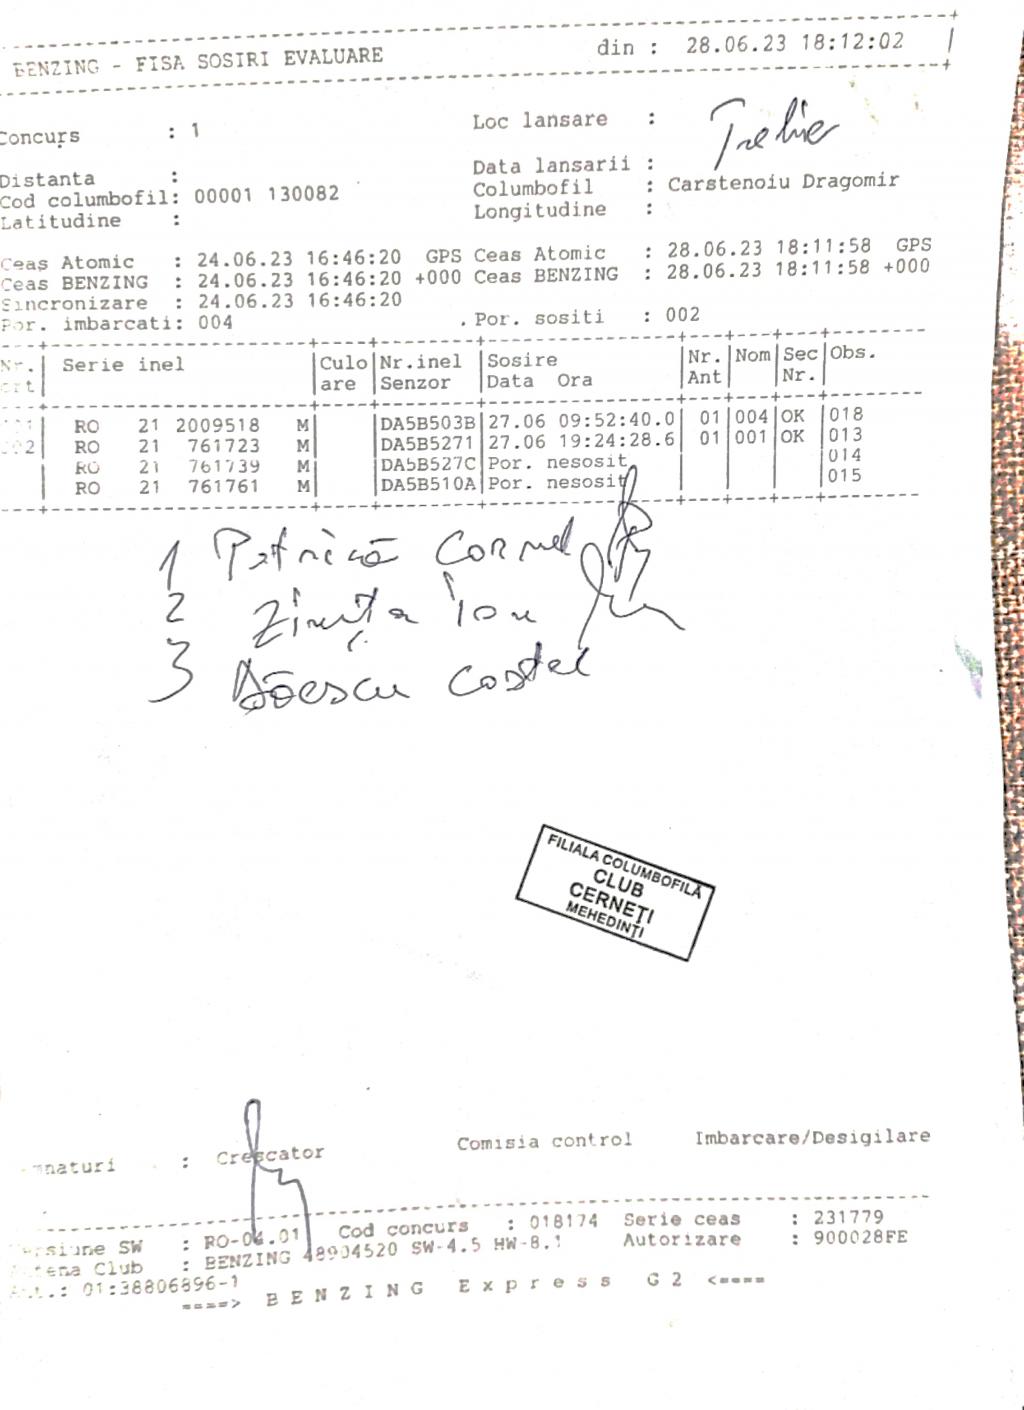 BENZING - FISA SOSIRI EVALUARE din : 28.06.23 18:12:02
Concurs : 1 Loc lansare :
Data lansarii :
Distanta :
Cod columbofil: 00001 130082 Columbofil : Carstenoiu Dragomir
Latitudine : Longitudine :
Ceas Atomic : 24.06.23 16:46:20 GPS Ceas Atomic : 28.06.23 18:11:58 GPS
Ceas BENZING : 24.06.23 16:46:20 +000 Ceas BENZING : 28.06.23 18:11:58 +000
Sincronizare : 24.06.23 16:46:20
Por. imbarcati: 004 . Por. sositi : 002
Nr. Serie inel Culo Nr.inel Sosire Nr. Nom Sec Obs.
crt are Senzor Data Ora Ant Nr.
RO 21 2009518 M DA5B503B 27.06 09:52:40.0 01 004 OK 018
002 RO 21 761723 M DA5B5271 27.06 19:24:28.6 01 001 OK 013
RO 21 761739 M DA5B527C Por. nesosit 014
RO 21 761761 M DA5B510A Por. nesosit 015
1 Petrică Cornel
2 Zinuța Ion
3 Costel
FILIALA COLUMBOFILĂ
CLUB
CERNEȚI
MEHEDINȚI
: Crescator Comisia control Imbarcare/Desigilare
Versiune SW : RO-04.01 Cod concurs : 018174 Serie ceas : 231779
Antena Club : BENZING 48904520 SW-4.5 HW-8.1 Autorizare : 900028FE
Ant.: 01:38806896-1
====> BENZING Express G2 <====